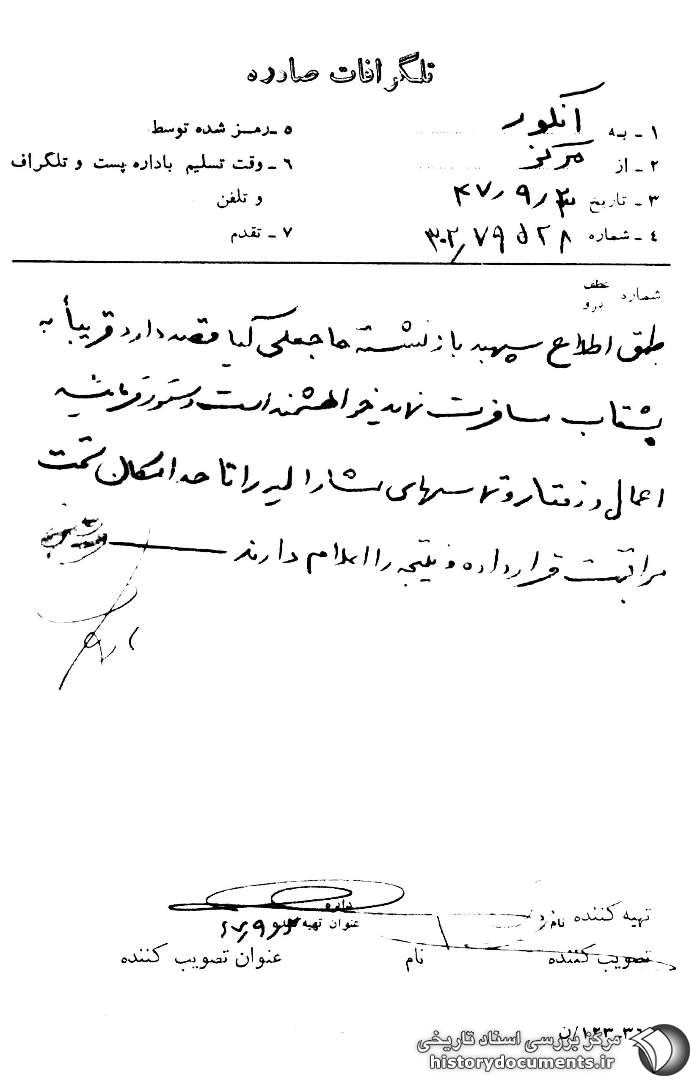 تلگرافات صادره
۱ - به آنکور
۲ - از مرکز
۳ - تاریخ ۴۷/۹/۳
۴ - شماره ۳۰۲/۷۹۵۲۸
۵ - رمز شده توسط
۶ - وقت تسلیم باداره پست و تلگراف
و تلفن
۷ - تقدم
شماره عطف پیرو
طبق اطلاع سپهبد بازنشسته حاجعلی کیا قصد دارد قریباً به
مسافرت نماید خواهشمند است دستور فرمائید
اعمال و رفتار و تماسهای مشارالیه را تا حد امکان تحت
مراقبت قرار داده و نتیجه را اعلام دارند
تهیه کننده نام
دایره
عنوان تهیه کننده
۴۷/۹/۳
تصویب کننده نام عنوان تصویب کننده
مرکز بررسی اسناد تاریخی
historydocuments.ir